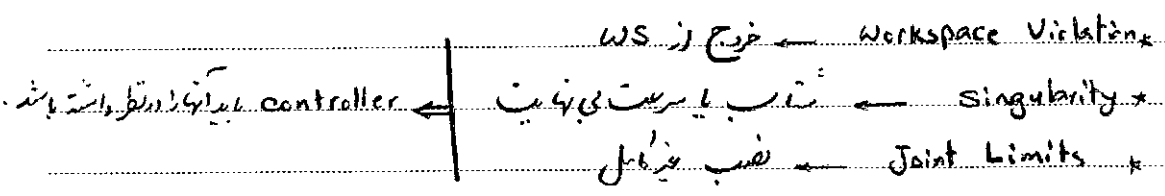 * Workspace Violation ← خروج از WS
* Singularity ← شتاب یا سرعت بی نهایت ⇐ controller باید آنها را در نظر داشته باشد.
* Joint Limits ← نصب غیر کامل